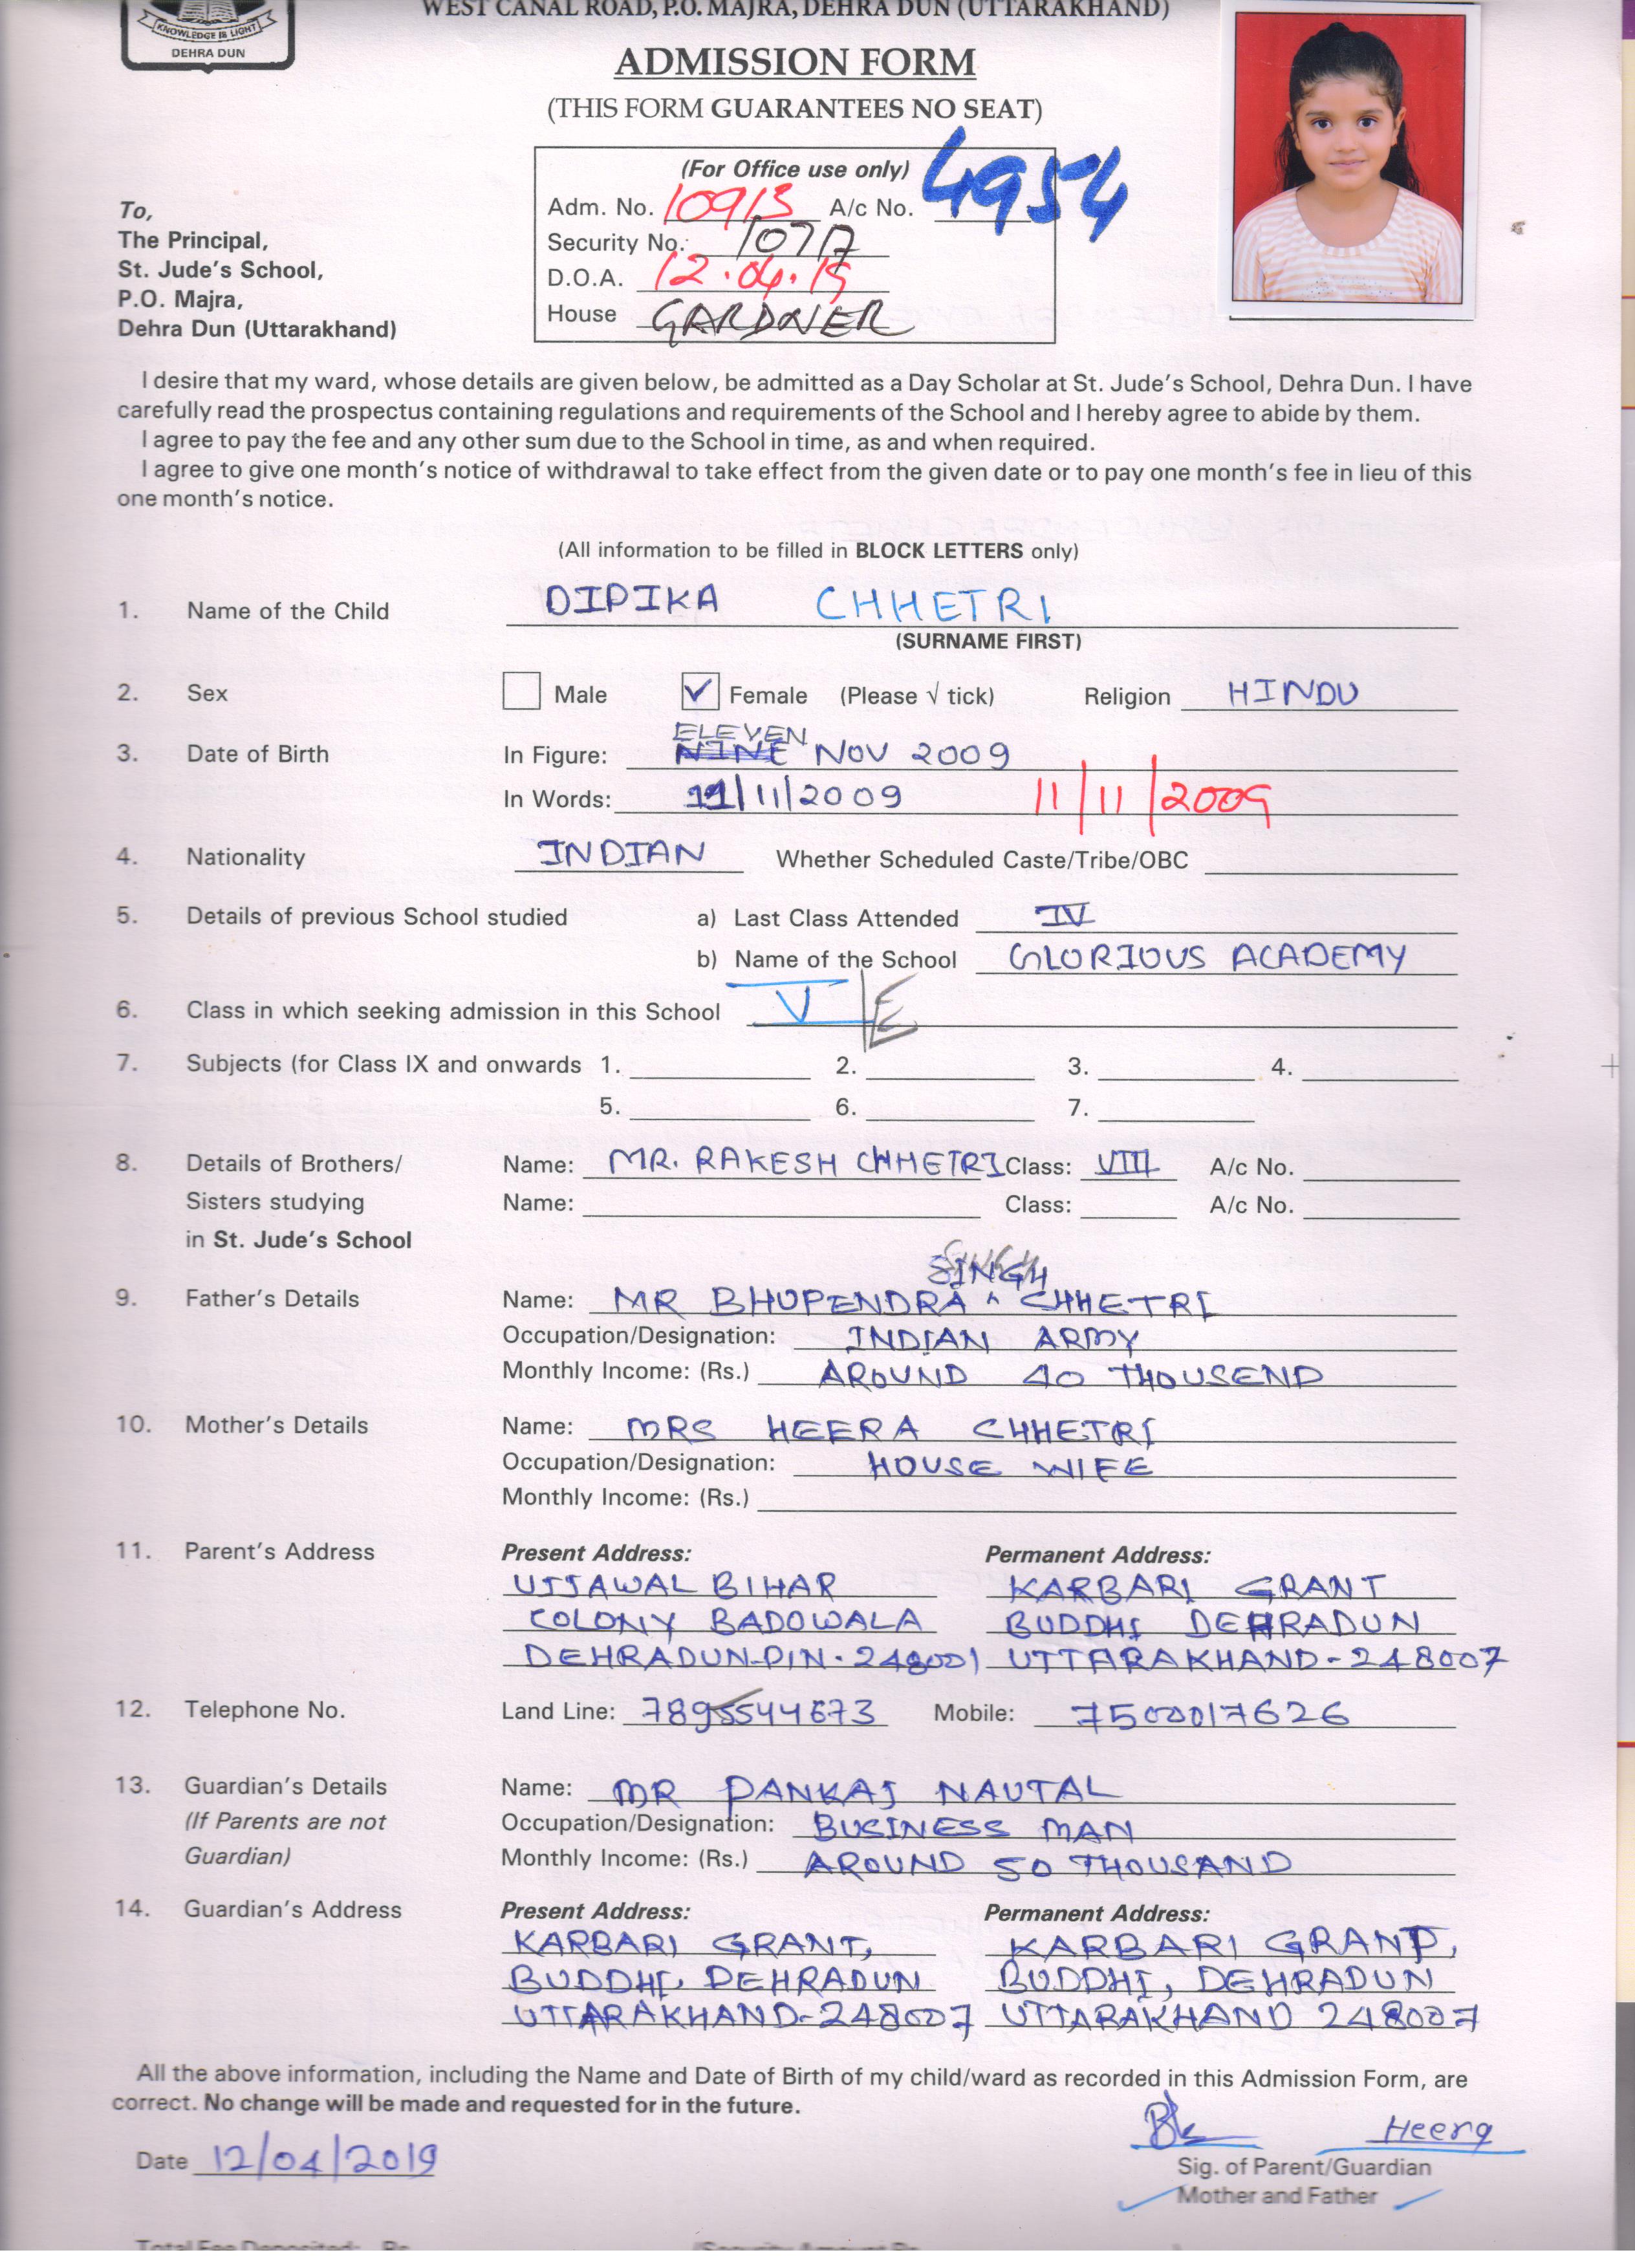 WEST CANAL ROAD, P.O. MAJRA, DEHRA DUN (UTTARAKHAND)
KNOWLEDGE IS LIGHT
DEHRA DUN
ADMISSION FORM
(THIS FORM GUARANTEES NO SEAT)
(For Office use only)
Adm. No. 10913 A/c No. 4954
Security No. 10717
D.O.A. 12.04.19
House GARDNER
To,
The Principal,
St. Jude's School,
P.O. Majra,
Dehra Dun (Uttarakhand)
I desire that my ward, whose details are given below, be admitted as a Day Scholar at St. Jude's School, Dehra Dun. I have
carefully read the prospectus containing regulations and requirements of the School and I hereby agree to abide by them.
I agree to pay the fee and any other sum due to the School in time, as and when required.
I agree to give one month's notice of withdrawal to take effect from the given date or to pay one month's fee in lieu of this
one month's notice.
(All information to be filled in BLOCK LETTERS only)
1. Name of the Child DIPIKA CHHETRI
(SURNAME FIRST)
2. Sex Male ✓ Female (Please √ tick) Religion HINDU
ELEVEN
3. Date of Birth In Figure: NINE NOV 2009
In Words: 11/11/2009 11/11/2009
4. Nationality INDIAN Whether Scheduled Caste/Tribe/OBC
5. Details of previous School studied a) Last Class Attended IV
b) Name of the School GLORIOUS ACADEMY
6. Class in which seeking admission in this School V E
7. Subjects (for Class IX and onwards 1. 2. 3. 4.
5. 6. 7.
8. Details of Brothers/ Name: MR. RAKESH CHHETRI Class: VIII A/c No.
Sisters studying Name: Class: A/c No.
in St. Jude's School
SINGH
9. Father's Details Name: MR BHUPENDRA ^ CHHETRI
Occupation/Designation: INDIAN ARMY
Monthly Income: (Rs.) AROUND 40 THOUSEND
10. Mother's Details Name: MRS HEERA CHHETRI
Occupation/Designation: HOUSE WIFE
Monthly Income: (Rs.)
11. Parent's Address Present Address: Permanent Address:
UJJAWAL BIHAR KARBARI GRANT
COLONY BADOWALA BUDDHI DEHRADUN
DEHRADUN-PIN-248001 UTTARAKHAND-248007
12. Telephone No. Land Line: 7895544673 Mobile: 7500017626
13. Guardian's Details Name: MR PANKAJ NAUTAL
(If Parents are not Occupation/Designation: BUSINESS MAN
Guardian) Monthly Income: (Rs.) AROUND 50 THOUSAND
14. Guardian's Address Present Address: Permanent Address:
KARBARI GRANT, KARBARI GRANT,
BUDDHI, DEHRADUN BUDDHI, DEHRADUN
UTTARAKHAND-248007 UTTARAKHAND 248007
All the above information, including the Name and Date of Birth of my child/ward as recorded in this Admission Form, are
correct. No change will be made and requested for in the future.
Heera
Date 12/04/2019
Sig. of Parent/Guardian
Mother and Father